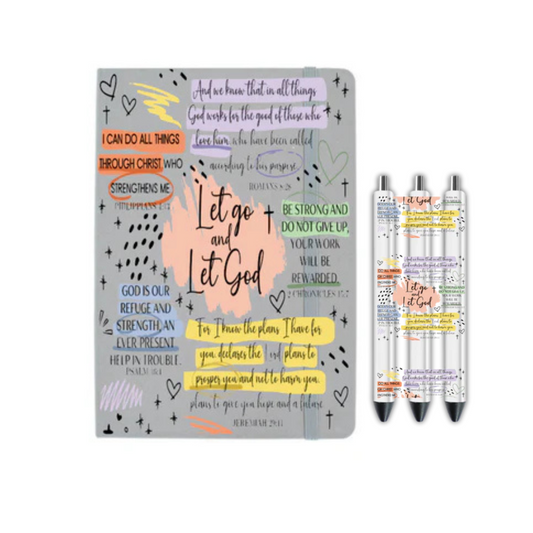 And we know that in all things
God works for the good of those who
love him, who have been called
according to his purpose.
ROMANS 8:28
I CAN DO ALL THINGS
THROUGH CHRIST, WHO
STRENGTHENS ME
PHILIPPIANS 4:13
Let go
and
Let God
BE STRONG AND
DO NOT GIVE UP,
YOUR WORK
WILL BE
REWARDED.
2 CHRONICLES 15:7
GOD IS OUR
REFUGE AND
STRENGTH, AN
EVER PRESENT
HELP IN TROUBLE.
PSALM 46:1
For I know the plans I have for
you, declares the Lord plans to
prosper you and not to harm you,
plans to give you hope and a future
JEREMIAH 29:11
Let God
For I know the plans I have for
Let go
and
Let God